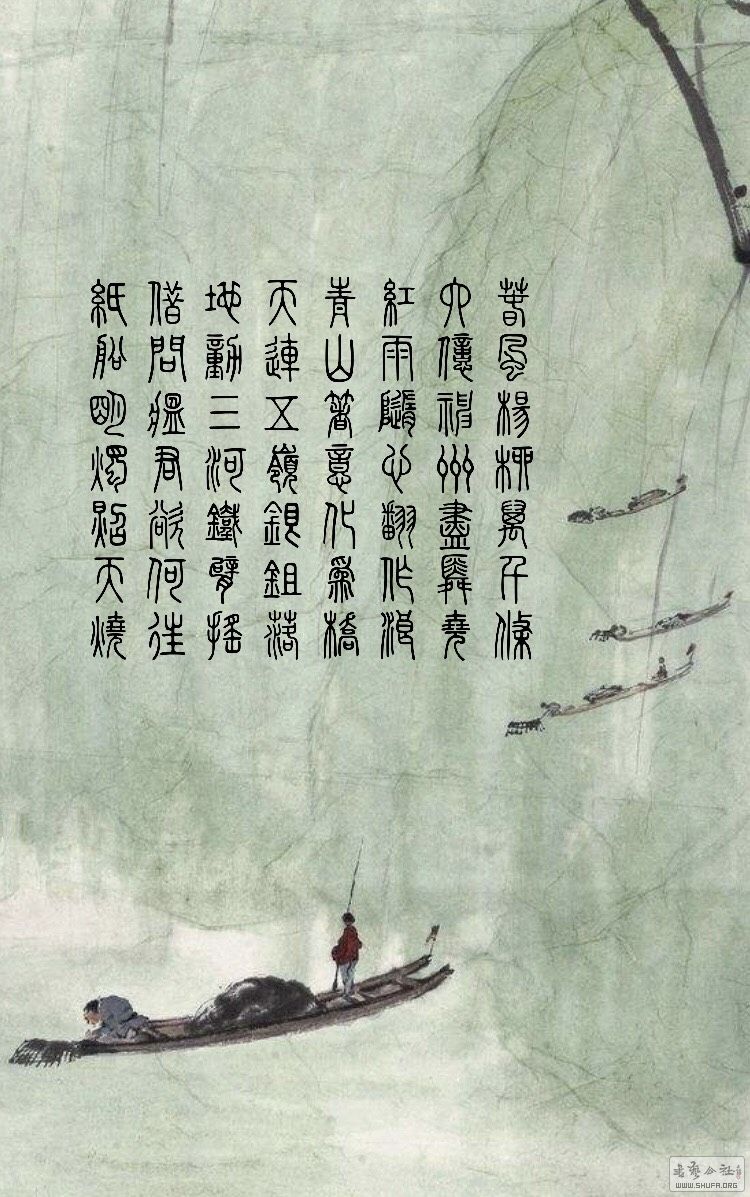 春風楊柳萬千條
六億神州盡舜堯
紅雨隨心翻作浪
青山著意化爲橋
天連五嶺銀鉏落
地動三河鐵臂搖
借問瘟君欲何往
紙船明燭照天燒
书艺公社
WWW.SHUFA.ORG